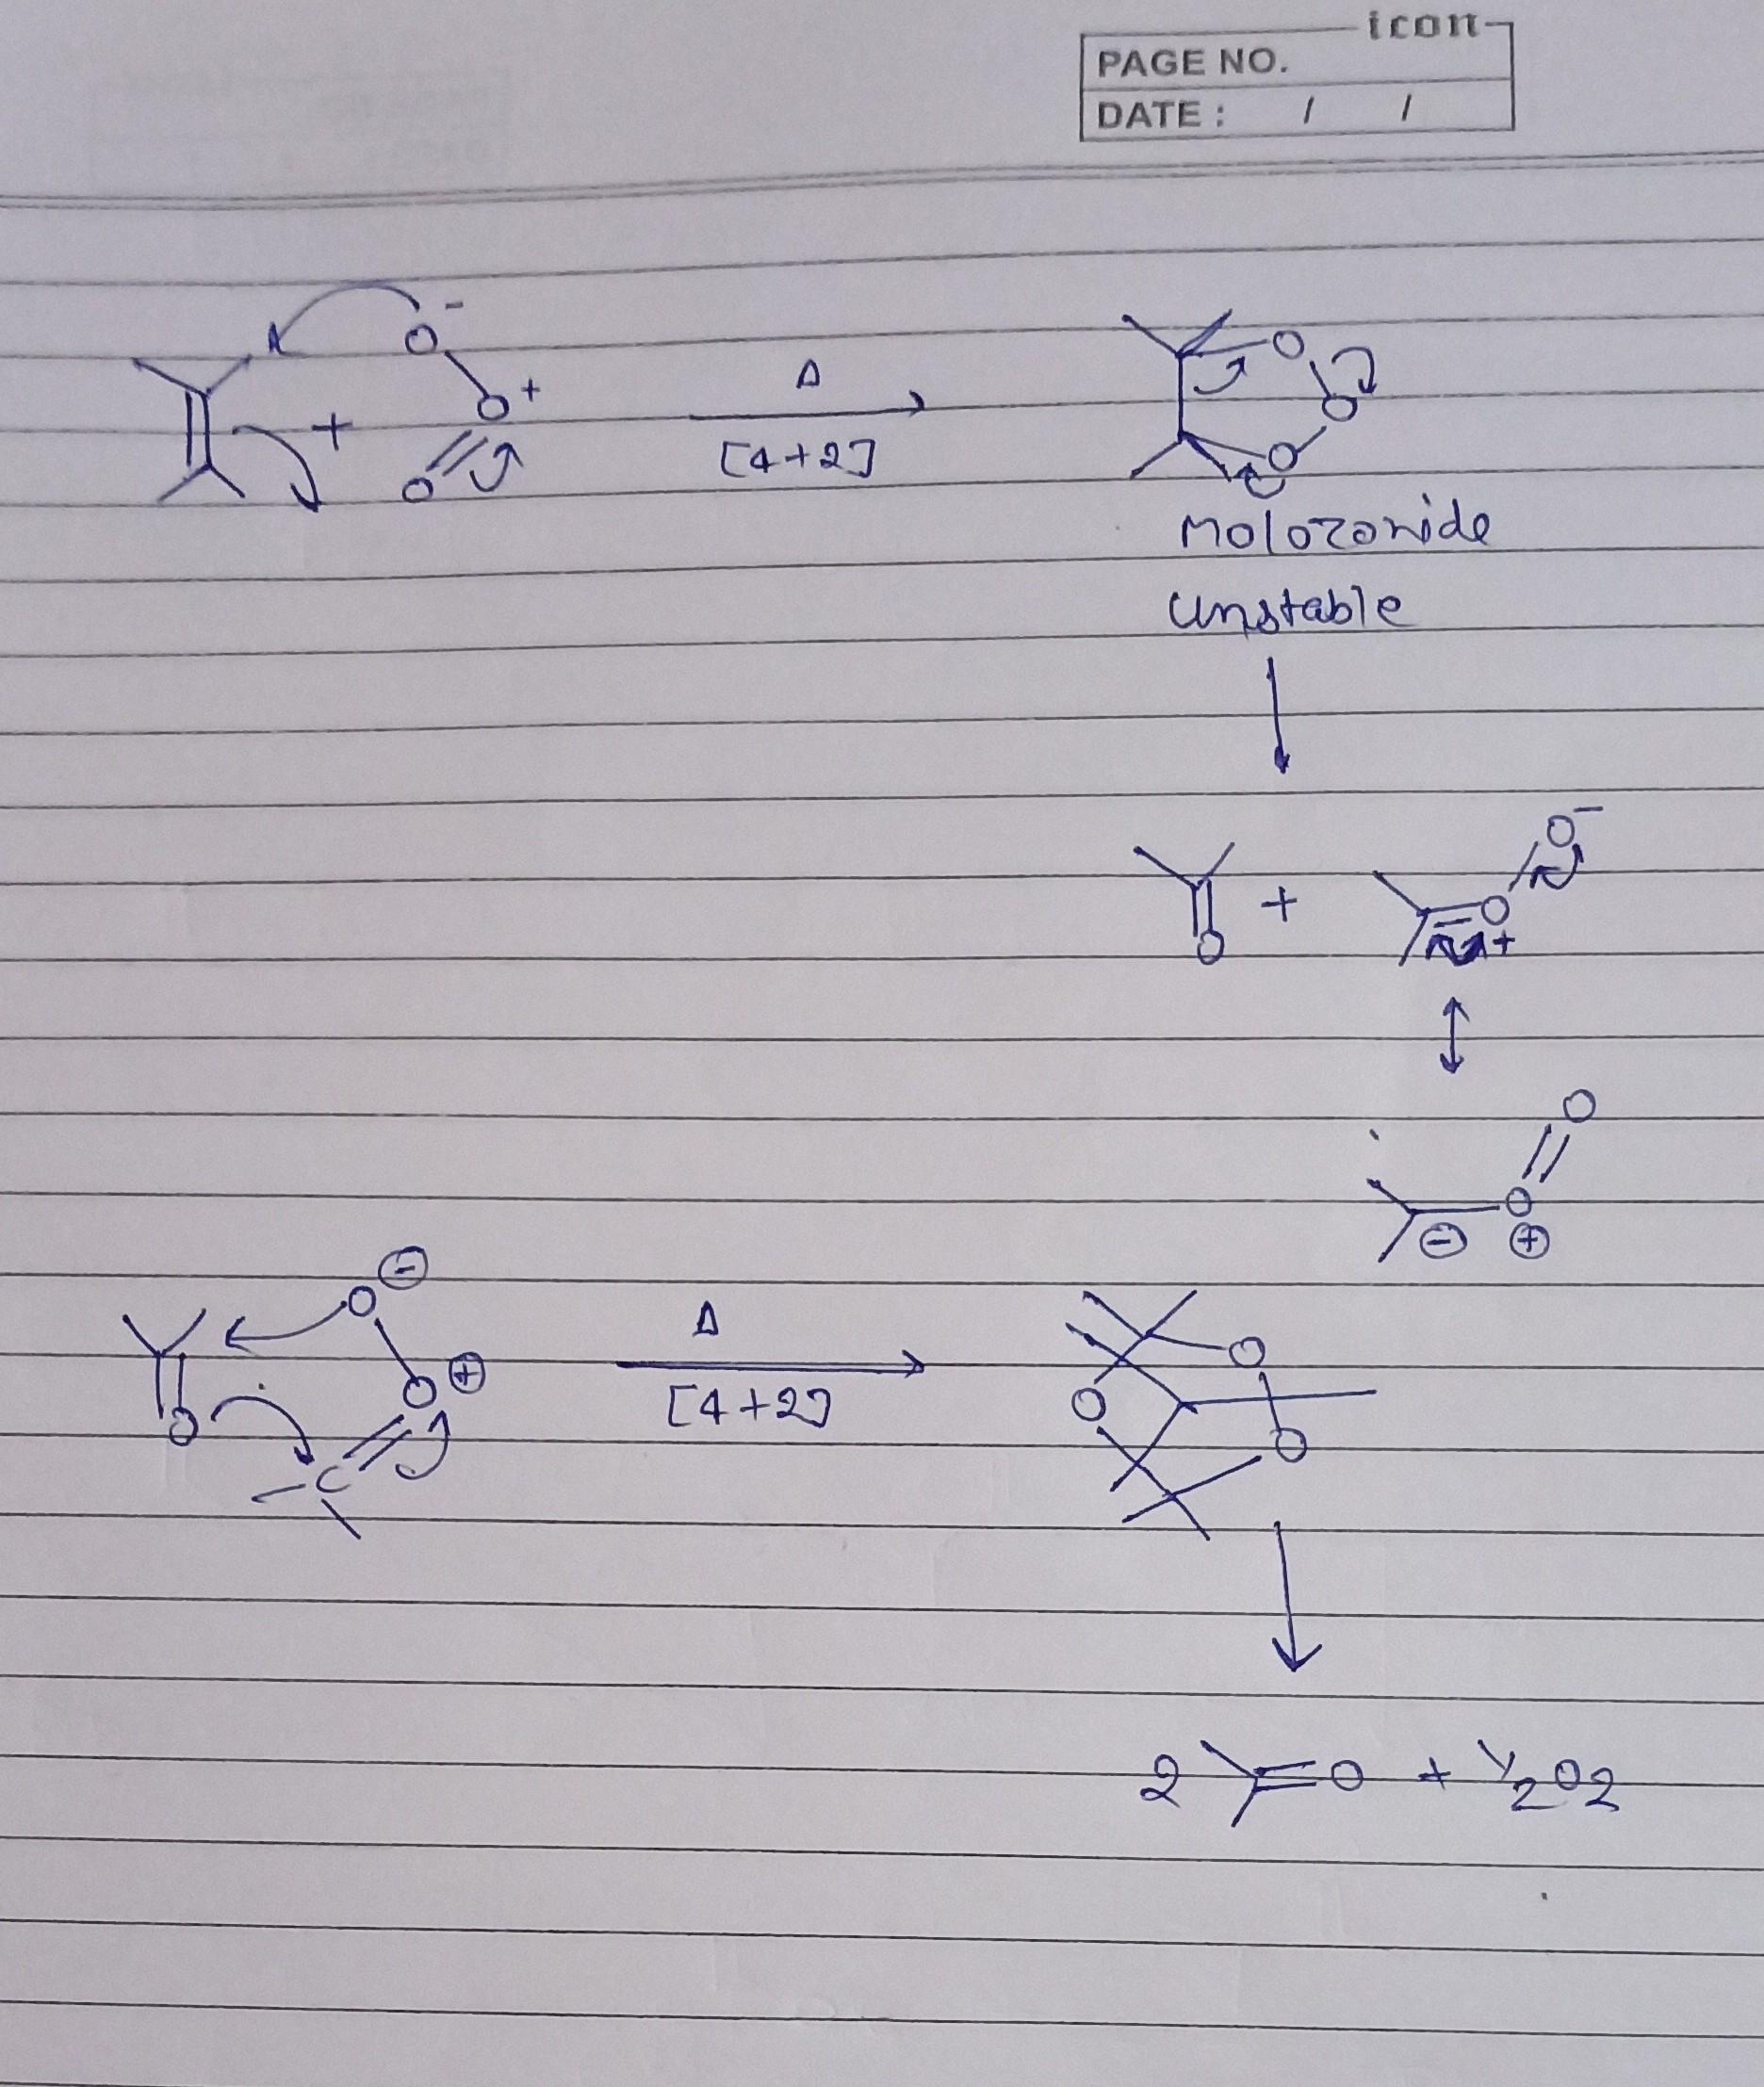 icon
PAGE NO.
DATE : / /
O -
O +
+
O
Δ
[4+2]
O
O
O
Molozonide
unstable
O
+
O -
O +
O
O
⊖ ⊕
O ⊖
O ⊕
O
C
Δ
[4+2]
O
O
O
2 =O + 1/2 O2